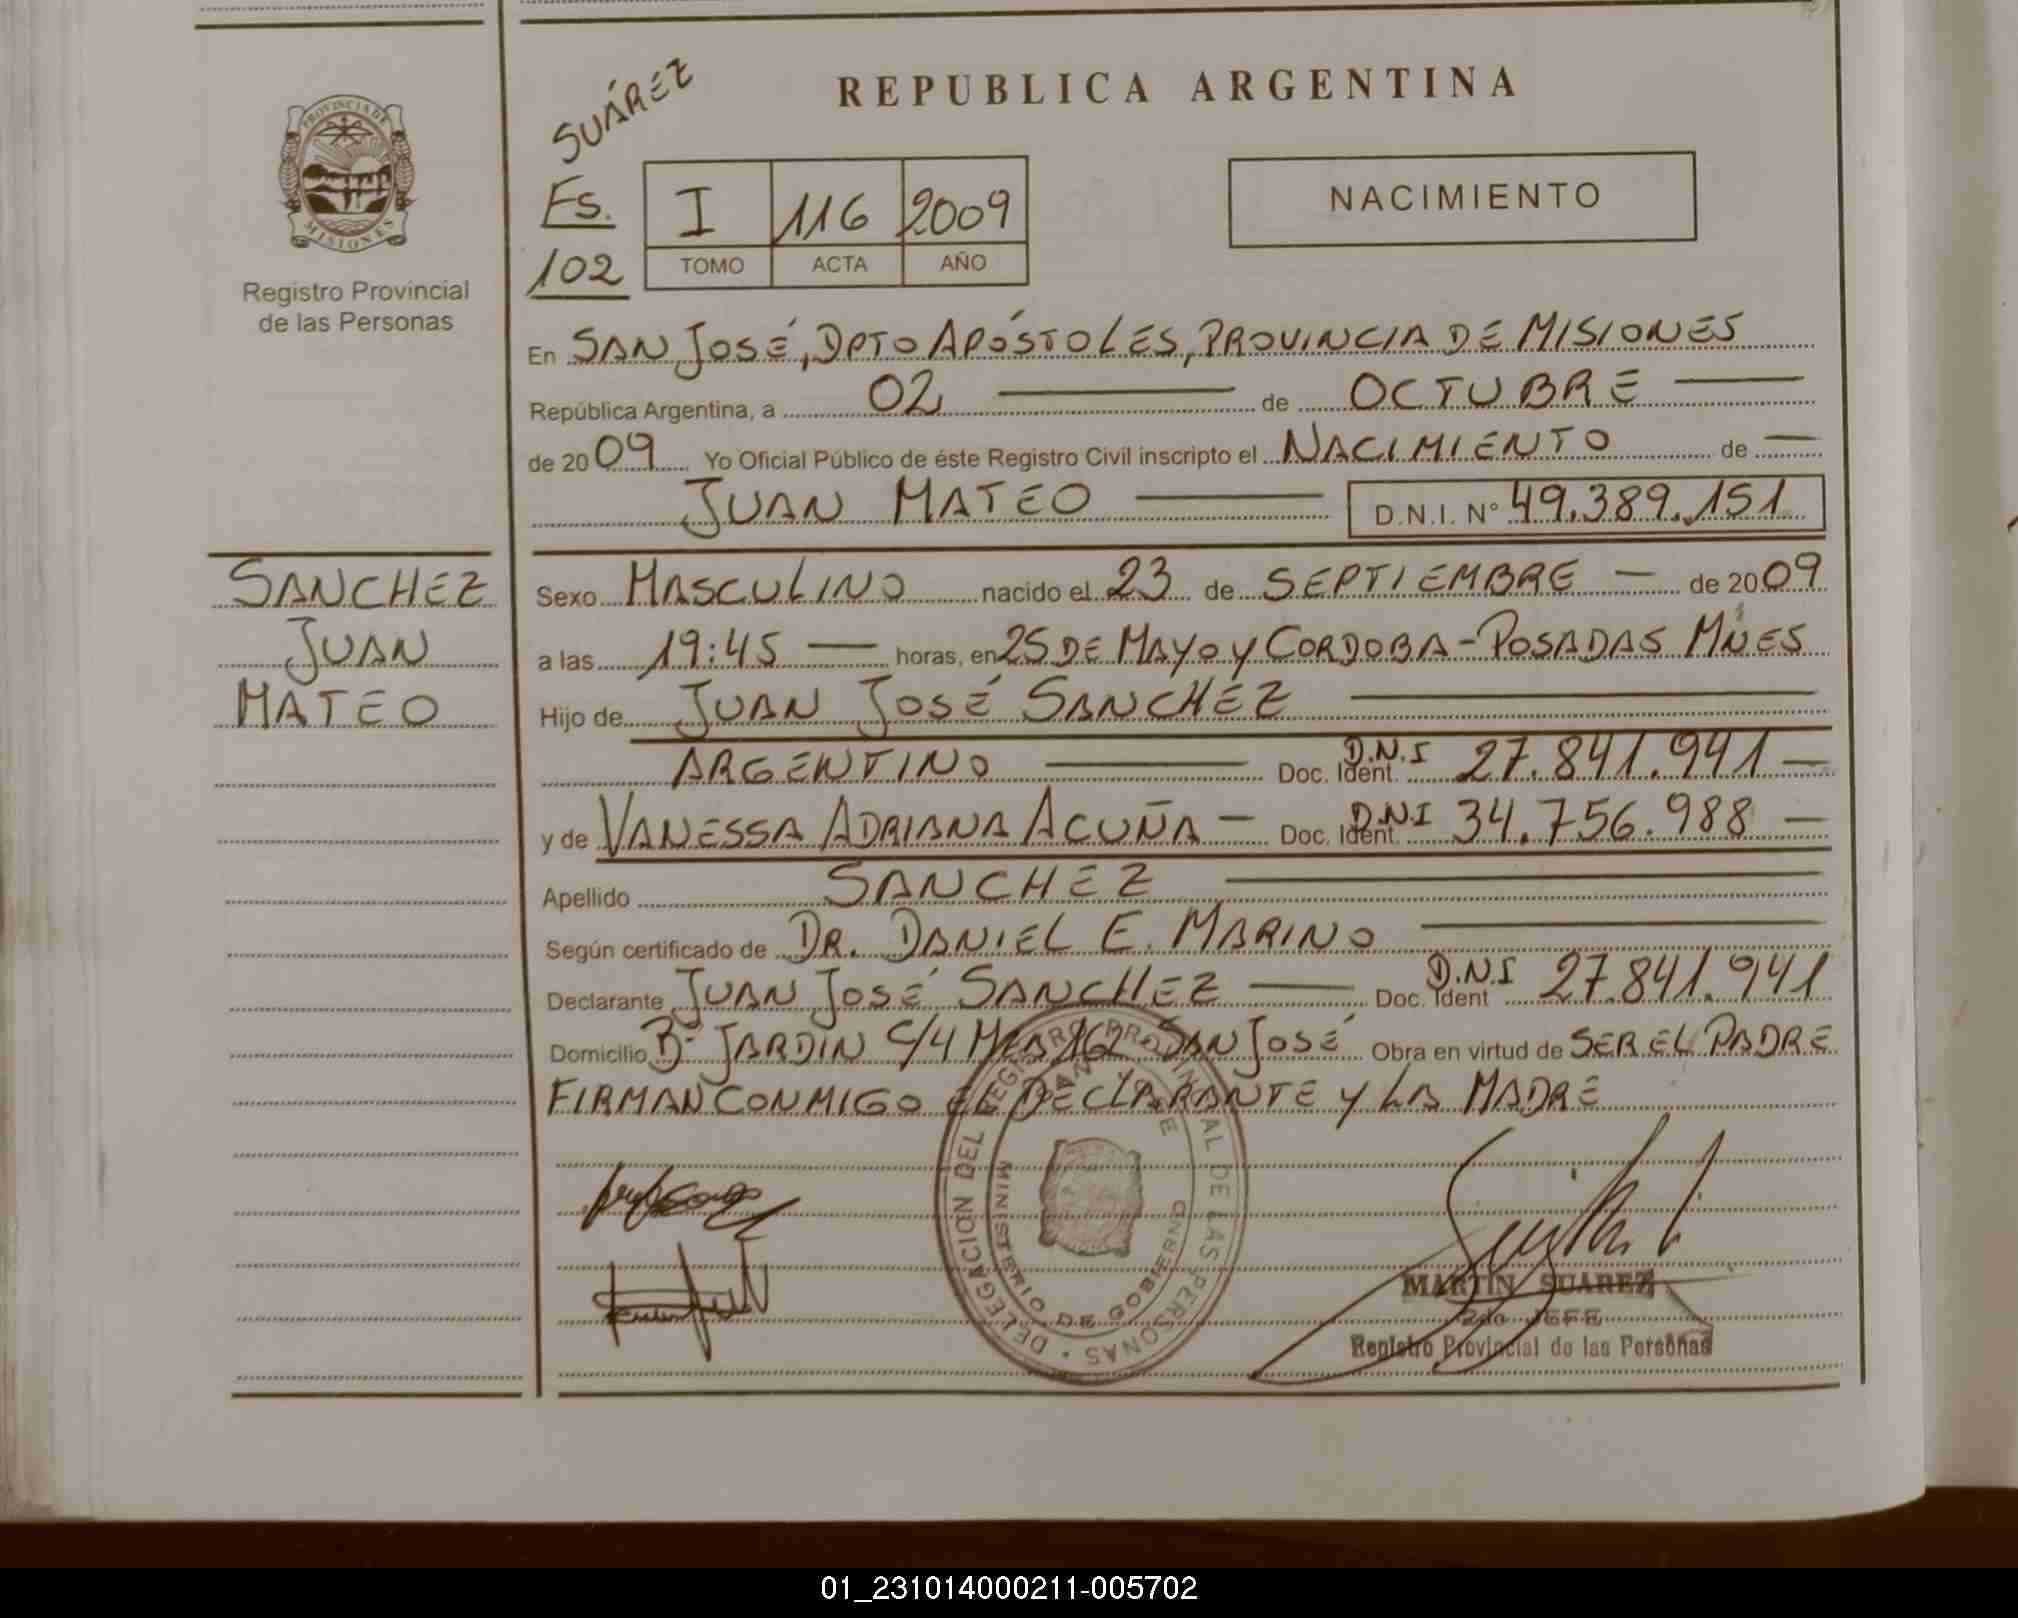 PROVINCIA DE
MISIONES
Registro Provincial
de las Personas
SUÁREZ
REPUBLICA ARGENTINA
Fs.
102
I 116 2009
TOMO ACTA AÑO
NACIMIENTO
En SAN JOSÉ, DPTO APÓSTOLES, PROVINCIA DE MISIONES
República Argentina, a 02 de OCTUBRE
de 2009 Yo Oficial Público de éste Registro Civil inscripto el NACIMIENTO de
JUAN MATEO D.N.I. N° 49.389.151
SANCHEZ
JUAN
MATEO
Sexo MASCULINO nacido el 23 de SEPTIEMBRE de 2009
a las 19:45 horas, en 25 DE MAYO Y CORDOBA - POSADAS MNES
Hijo de JUAN JOSÉ SANCHEZ
ARGENTINO Doc. Ident. D.N.I 27.841.941
y de VANESSA ADRIANA ACUÑA Doc. Ident. D.N.I 34.756.988
Apellido SANCHEZ
Según certificado de DR. DANIEL E. MARINO
Declarante JUAN JOSÉ SANCHEZ Doc. Ident D.N.I 27.841.941
Domicilio B- JARDIN C/4 162 - SAN JOSÉ Obra en virtud de SER EL PADRE
FIRMAN CONMIGO EL DECLARANTE Y LA MADRE
DELEGACION DEL REGISTRO PROVINCIAL DE LAS PERSONAS
MINISTERIO DE GOBIERNO
MARTIN SUAREZ
2do JEFE
Registro Provincial de las Personas
01_231014000211-005702